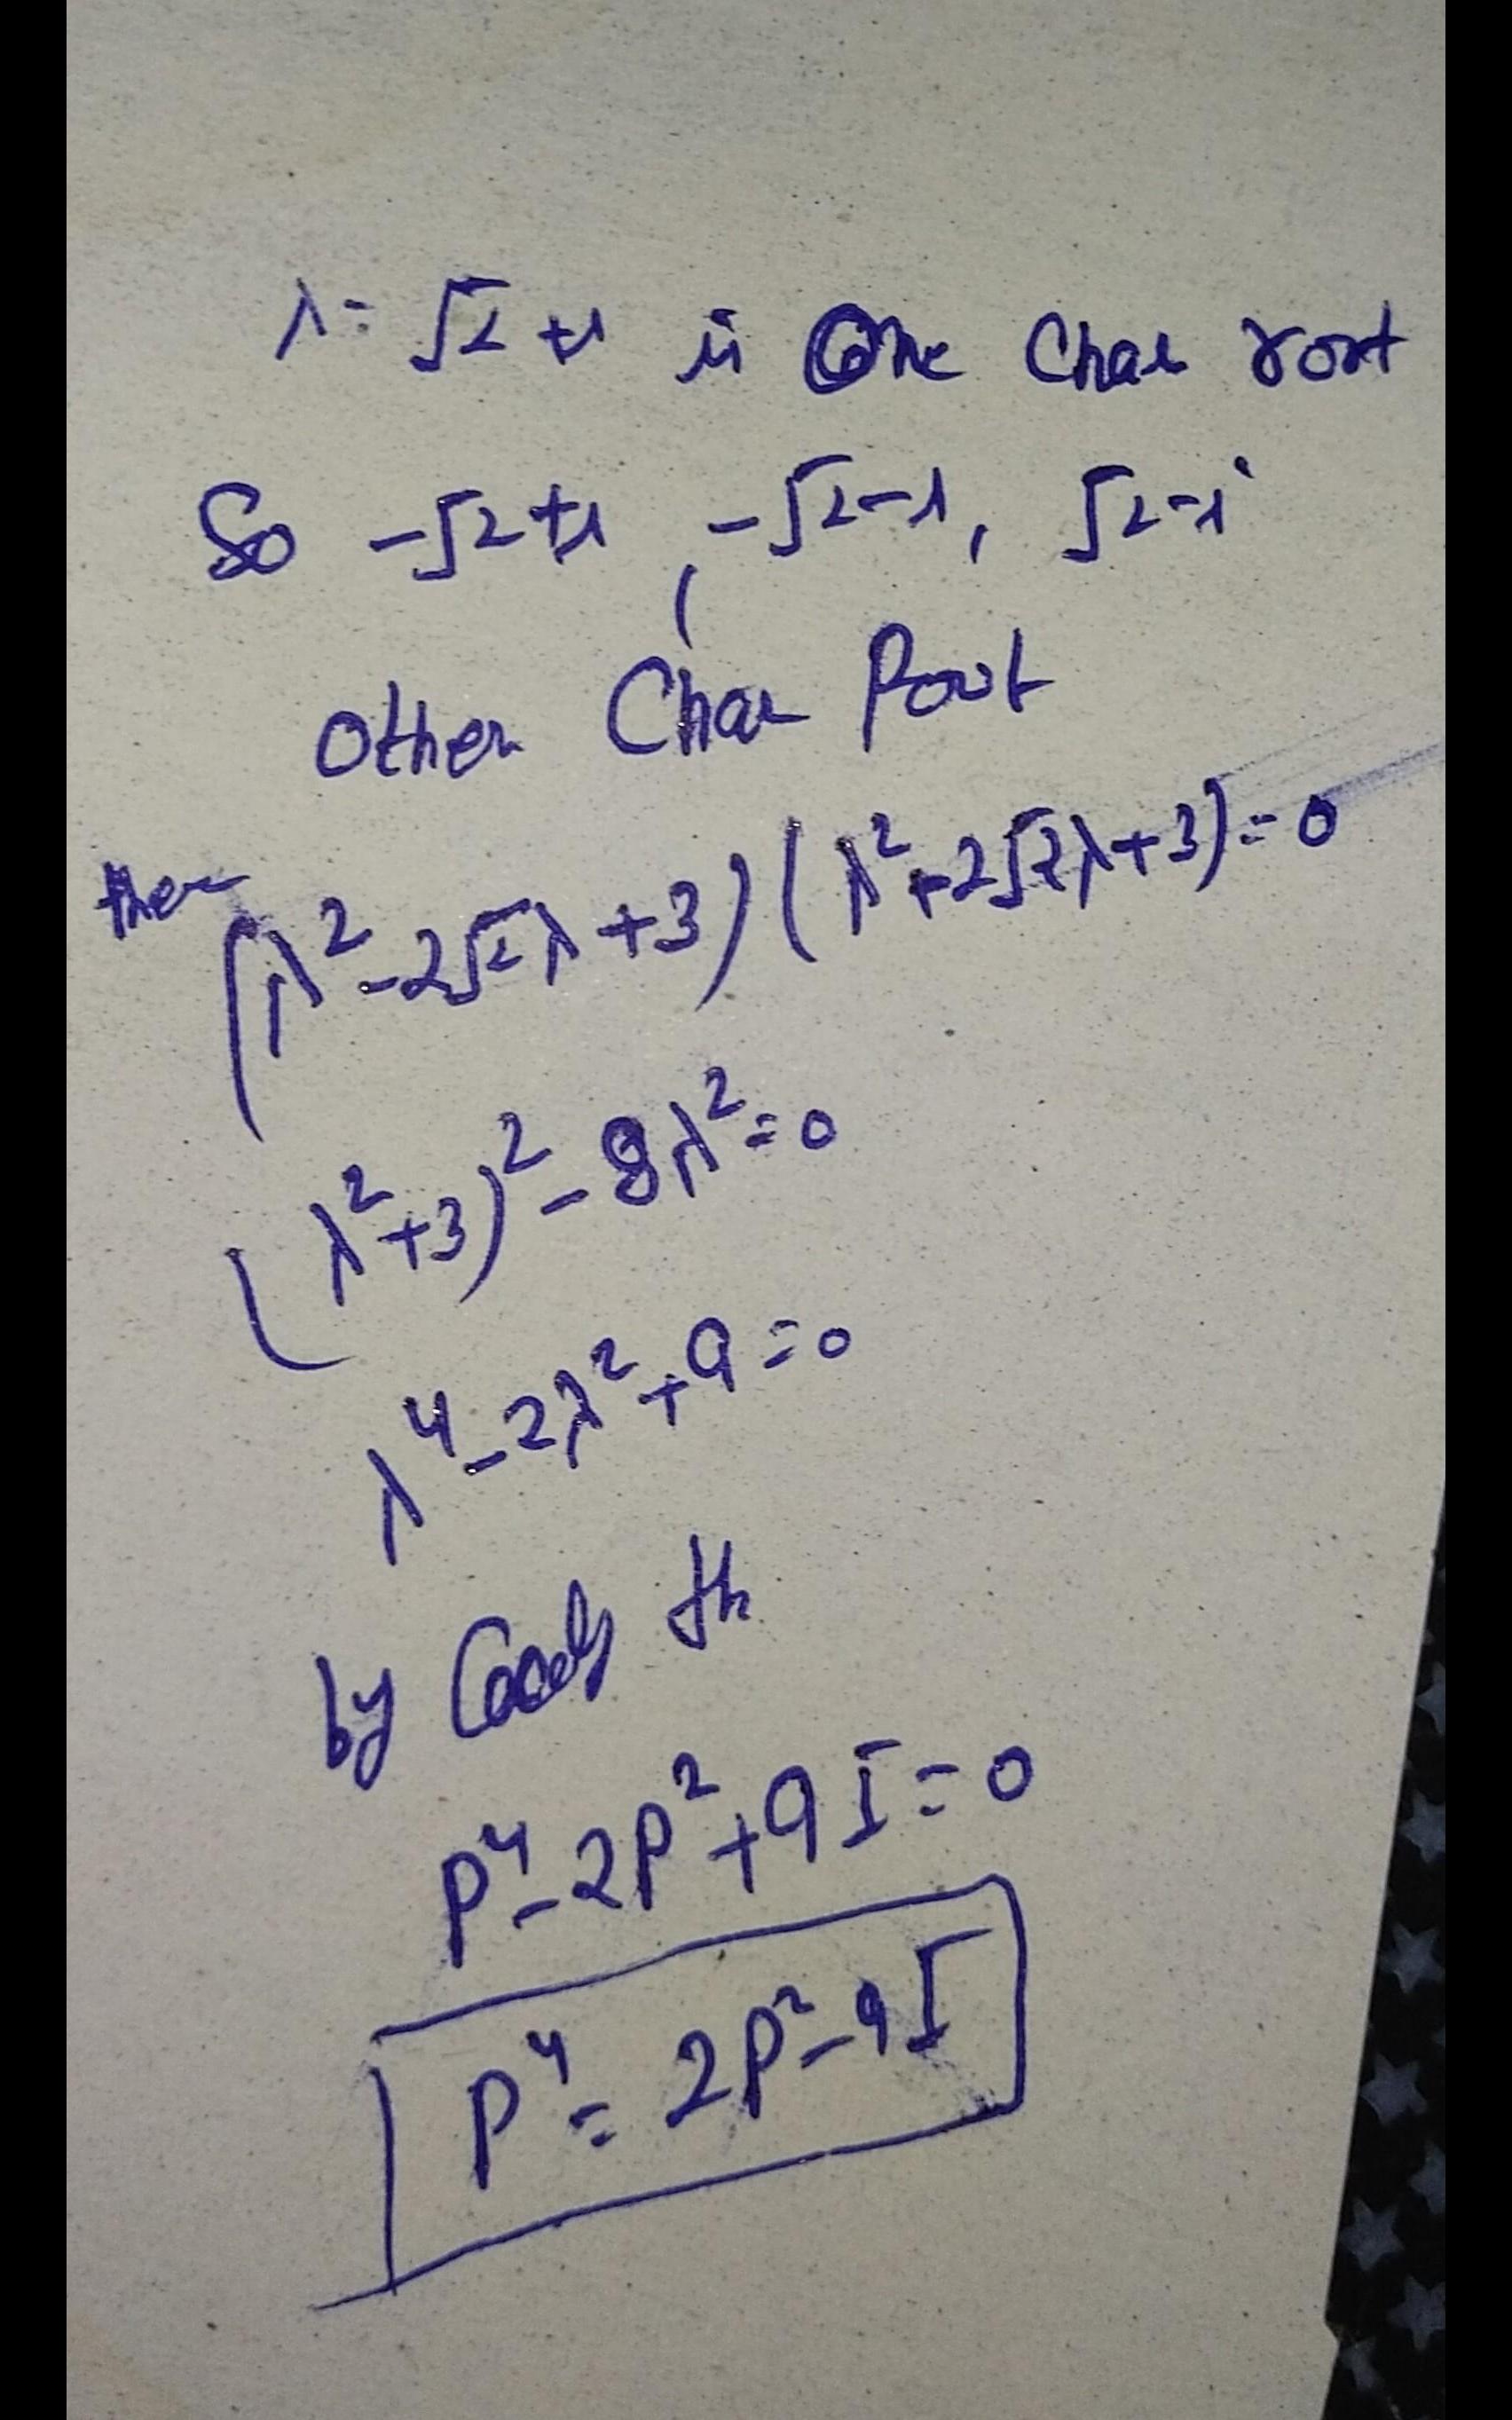 λ = √2 + i is One Char root
So -√2+i , -√2-i, √2-i
Other Char Root
then (λ²-2√2λ+3)(λ²+2√2λ+3)=0
(λ²+3)²-8λ²=0
λ⁴-2λ²+9=0
by th
P⁴-2P²+9I=0
P⁴=2P²-9I